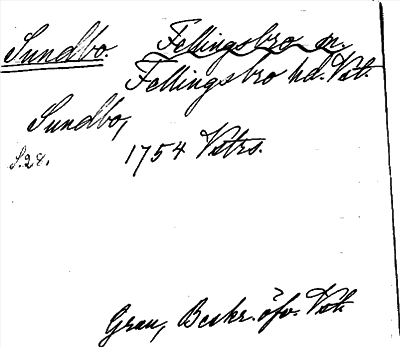 Sundbo. Fellingsbro sn.
Fellingsbro hd. Vstl.
Sundbo,
S. 28. 1754 Vstrs.
Grau, Beskr. öfv. Vstl.